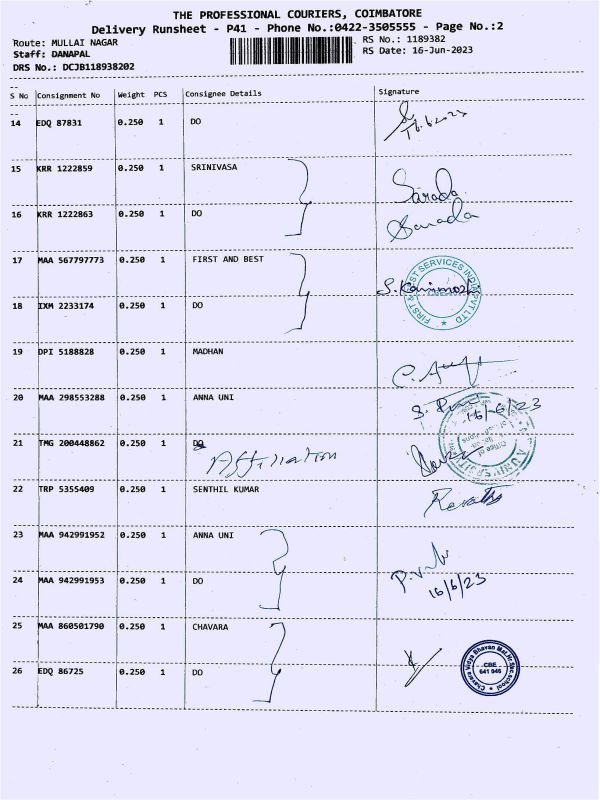 THE PROFESSIONAL COURIERS, COIMBATORE
Delivery Runsheet - P41 - Phone No.:0422-3505555 - Page No.:2
Route: MULLAI NAGAR RS No.: 1189382
Staff: DANAPAL RS Date: 16-Jun-2023
DRS No.: DCJB118938202
S No Consignment No Weight PCS Consignee Details Signature
14 EDQ 87831 0.250 1 DO
16.6.2023
15 KRR 1222859 0.250 1 SRINIVASA Sarada
16 KRR 1222863 0.250 1 DO Sarada
17 MAA 567797773 0.250 1 FIRST AND BEST
18 IXM 2233174 0.250 1 DO
19 DPI 5188828 0.250 1 MADHAN
20 MAA 298553288 0.250 1 ANNA UNI 16/6/23
21 TMG 200448862 0.250 1 DO
Affiliation
22 TRP 5355409 0.250 1 SENTHIL KUMAR Revathi
23 MAA 942991952 0.250 1 ANNA UNI
24 MAA 942991953 0.250 1 DO 16/6/23
25 MAA 860501790 0.250 1 CHAVARA
26 EDQ 86725 0.250 1 DO
Chavara Vidya Bhavan Mat.Hr.Sec.School
CBE
641 046